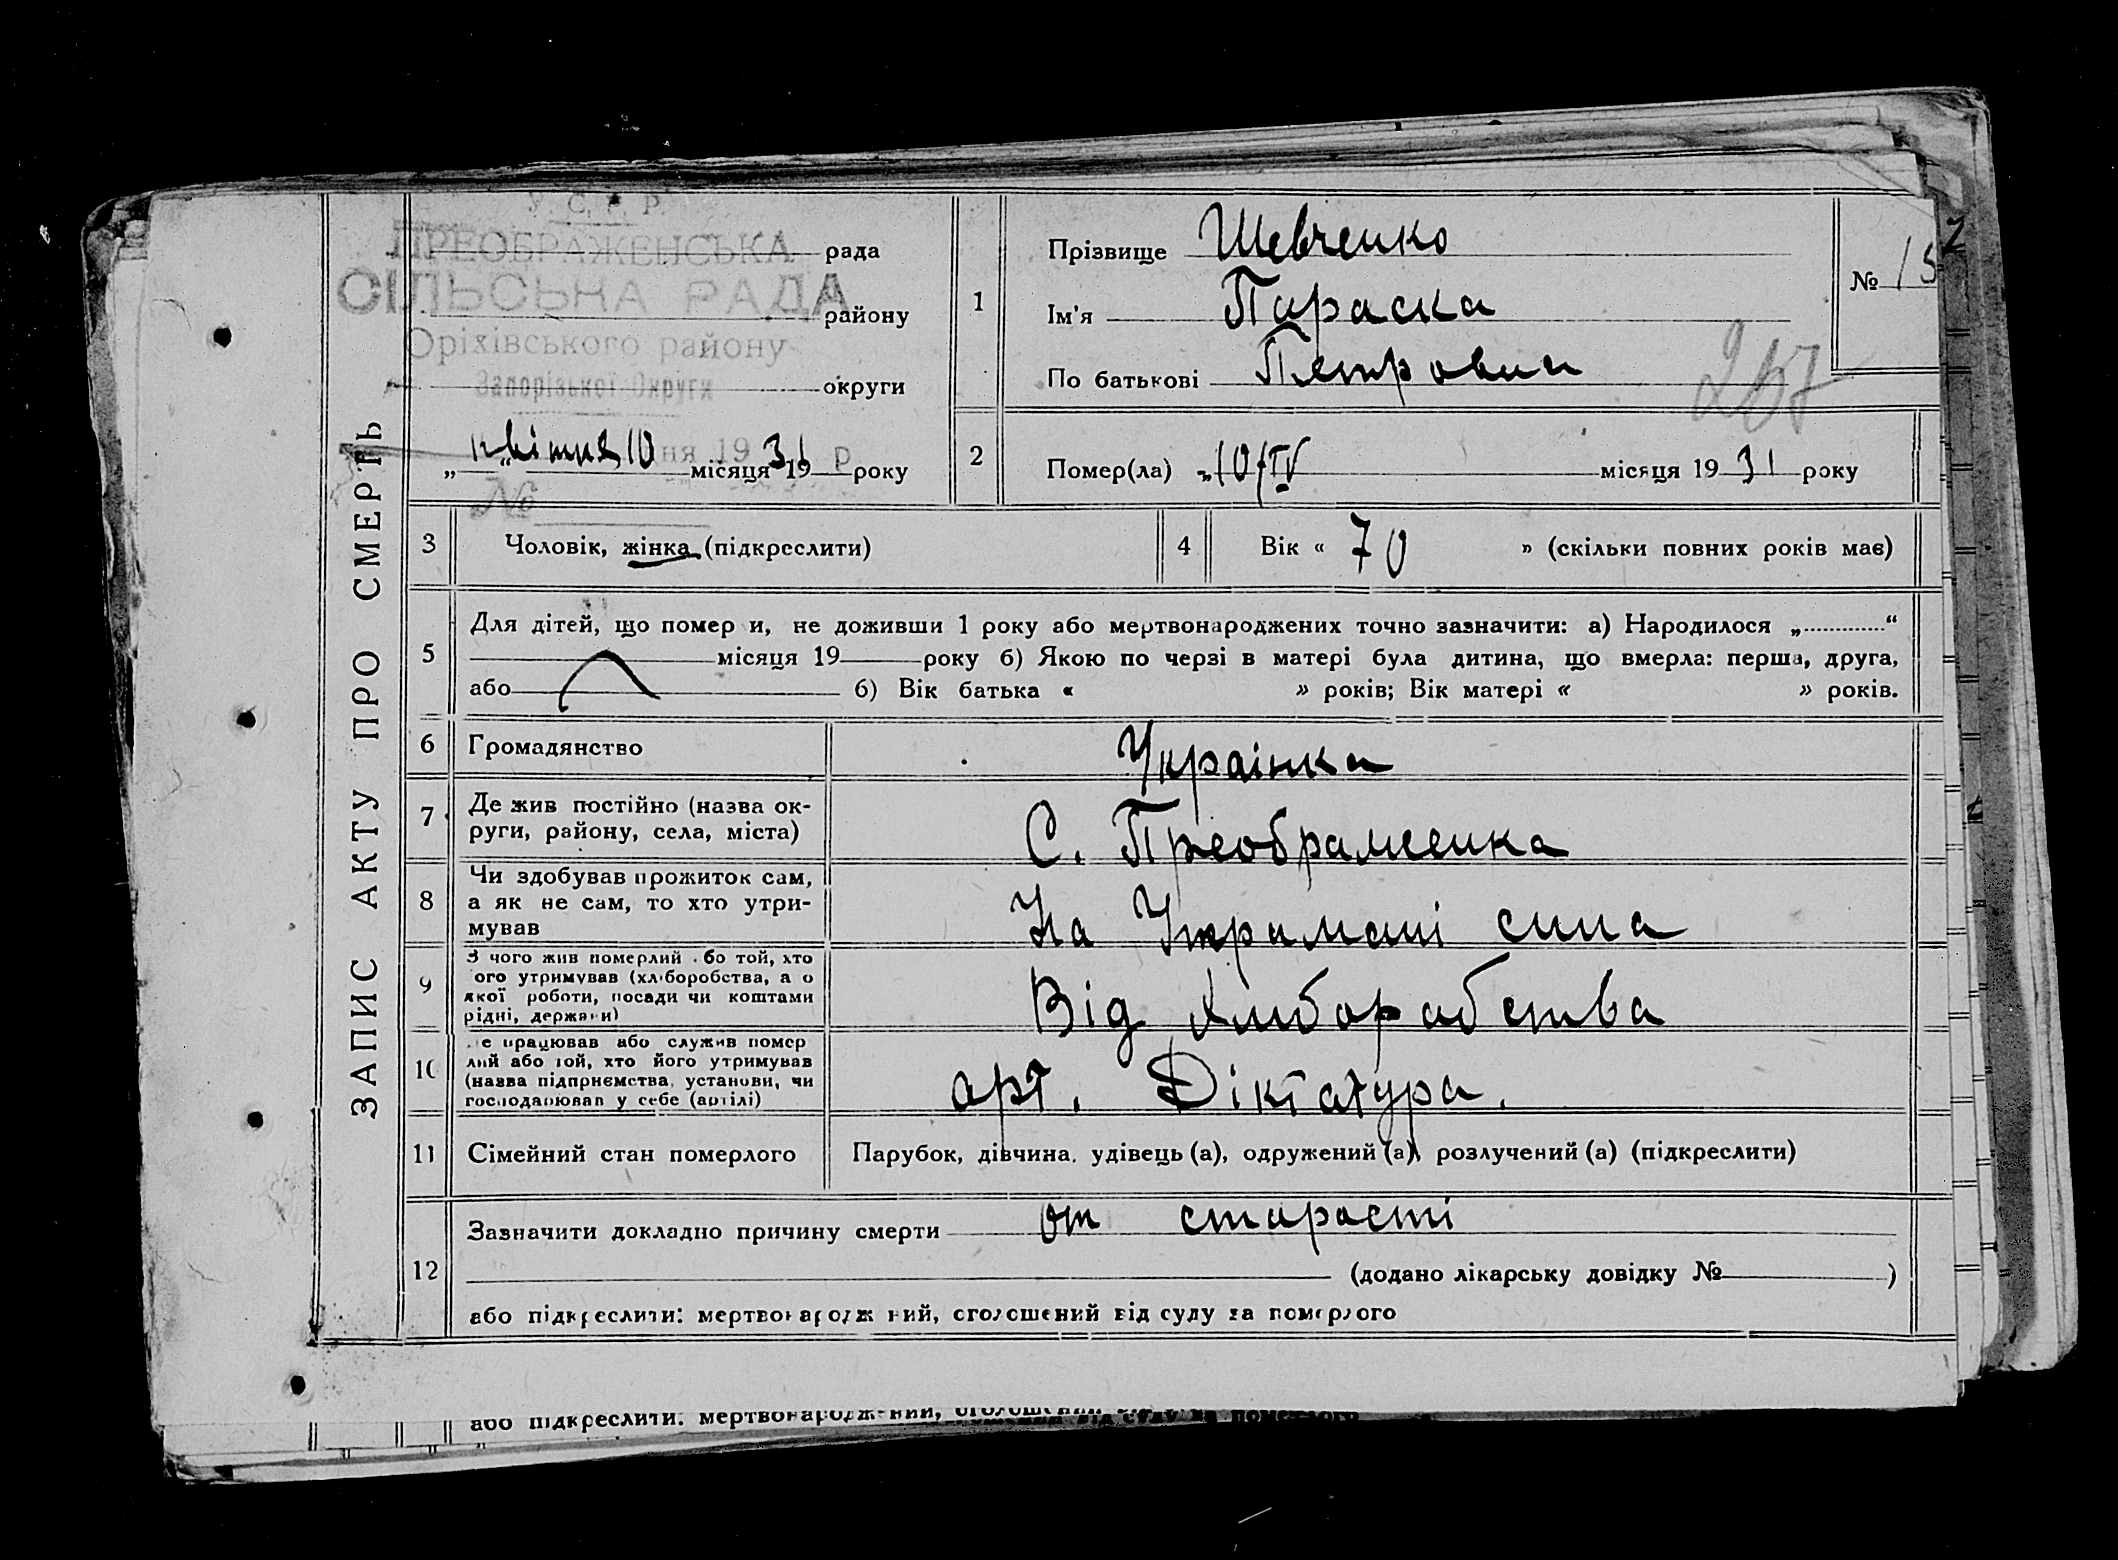 ЗАПИС АКТУ ПРО СМЕРТЬ
У. С. Р. Р.
ПРЕОБРАЖЕНСЬКА рада
СІЛЬСЬКА РАДА
району
Оріхівського району
Запорізької Округи округи
„ “ квітня 10 дня 19 місяця 1931 р року
№
1
Прізвище Шевченко
Ім'я Параска
По батькові Петровни
№ 15
2
257
2
Помер(ла) „10/IV місяця 1931 року
3 Чоловік, жінка (підкреслити)
4 Вік « 70 » (скільки повних років має)
5 Для дітей, що помер и, не доживши 1 року або мертвонароджених точно зазначити: а) Народилося „ “
місяця 19 року б) Якою по черзі в матері була дитина, що вмерла: перша, друга,
або б) Вік батька « » років; Вік матері « » років.
6 Громадянство Українка
7 Де жив постійно (назва ок-
руги, району, села, міста) С. Преображенка
8 Чи здобував прожиток сам,
а як не сам, то хто утри-
мував На Утримані сина
9 З чого жив померлий або той, хто
ого утримував (хліборобства, а о
якої роботи, посади чи коштами
рідні, держави) Від хлиборобства
10 е працював або служив помер
лий або той, хто його утримував
(назва підприємства, установи, чи
господарював у себе (артілі) арт. Діктатура.
11 Сімейний стан померлого Парубок, дівчина, удівець (а), одружений (а), розлучений (а) (підкреслити)
12 Зазначити докладно причину смерти от старасті
(додано лікарську довідку № )
або підкреслити: мертвонародж ний, оголошений від суду за померлого
або підкреслити: мертвонароджений, оголошений від суду за померлого